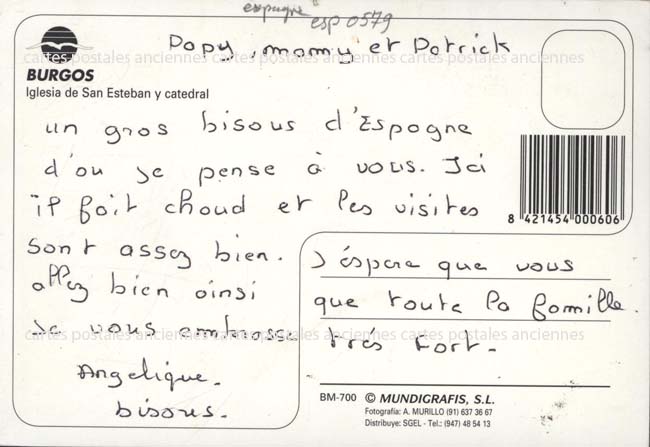 espagne esp 0579
Papy, mamy et Patrick
cartes postales anciennes cartes postales anciennes cartes postales anciennes
BURGOS
Iglesia de San Esteban y catedral
un gros bisous d'Espagne
d'ou je pense à vous. Ici
il fait chaud et les visites
8 421454 000606
sont assez bien. J'éspere que vous
allez bien ainsi que toute la famille.
je vous embrasse très fort.
cartes postales anciennes cartes postales anciennes cartes postales anciennes
Angelique.
bisous.
BM-700 © MUNDIGRAFIS, S.L.
Fotografía: A. MURILLO (91) 637 36 67
Distribuye: SGEL - Tel.: (947) 48 54 13